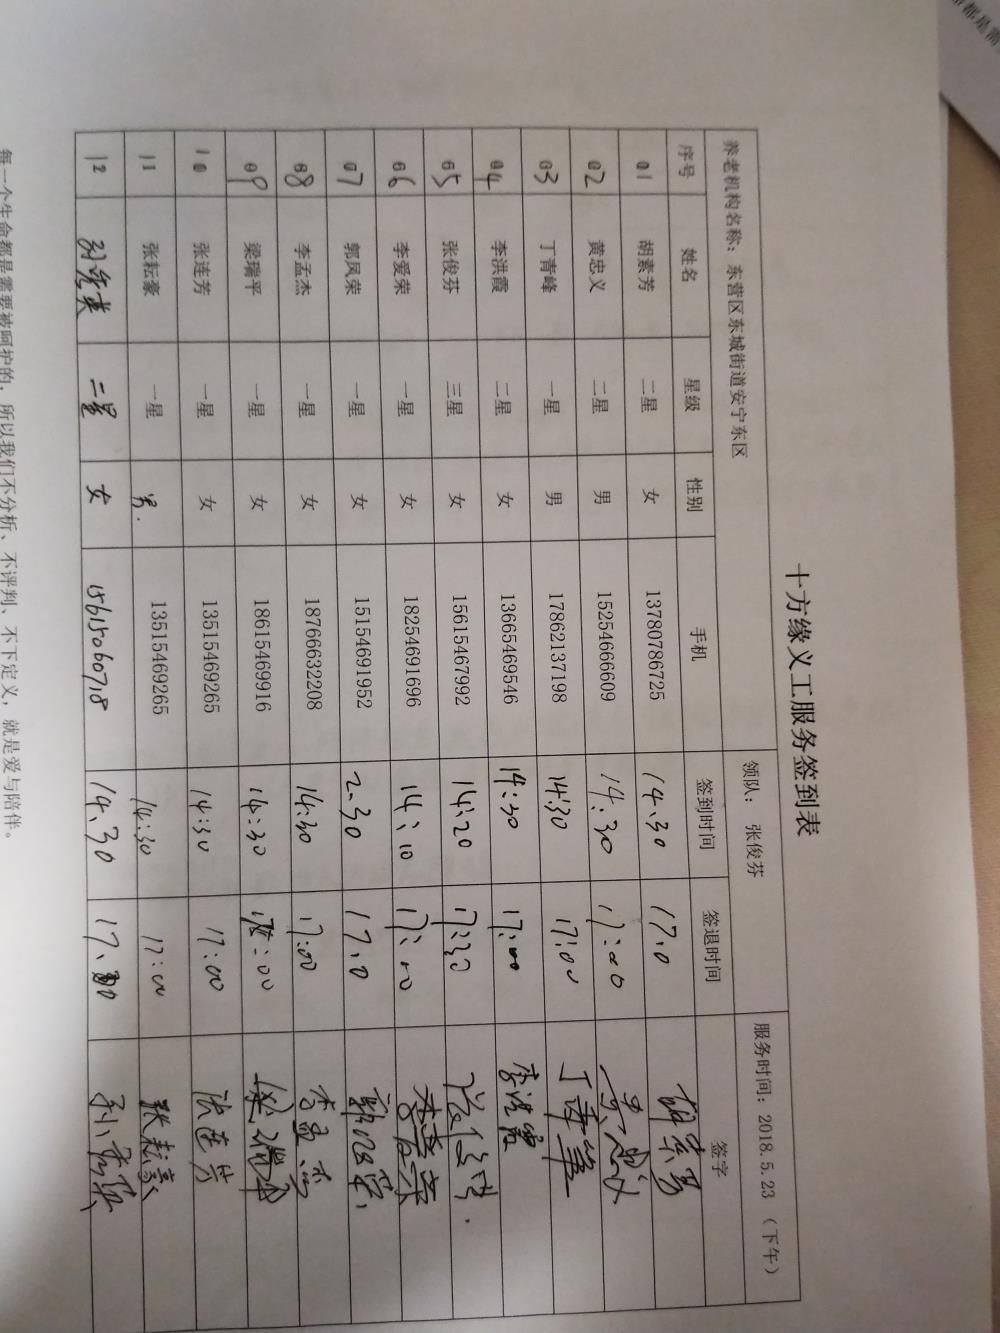 十方缘义工服务签到表
养老机构名称：东营区东城街道安宁东区 领队：张俊芬 服务时间：2018.5.23（下午）
序号 姓名 星级 性别 手机 签到时间 签退时间 签字
01 胡素芳 二星 女 13780786725 14.30 17.0 胡素芳
02 黄忠义 二星 男 15254666609 14.30 17:00 黄忠义
03 丁青峰 一星 男 17862137198 14:30 17:00 丁青峰
04 李洪霞 二星 女 13665469546 14:30 17:00 李洪霞
05 张俊芬 三星 女 15615467992 14:20 17:30 张俊芬
06 李爱荣 一星 女 18254691696 14:10 17:00 李爱荣
07 郭风荣 一星 女 15154691952 2.30 17.0 郭风荣
08 李孟杰 一星 女 18766632208 14:30 17:00 李孟杰
09 梁瑞平 一星 女 18615469916 14:30 :00 梁瑞平
10 张连芳 一星 女 13515469265 14:30 17:00 张连芳
11 张耘豪 一星 男 13515469265 14:30 17:00 张耘豪
12 二星 女 15615060718 14.30 17.
每一个生命都是需要被呵护的，所以我们不分析、不评判、不下定义，就是爱与陪伴。
都是需